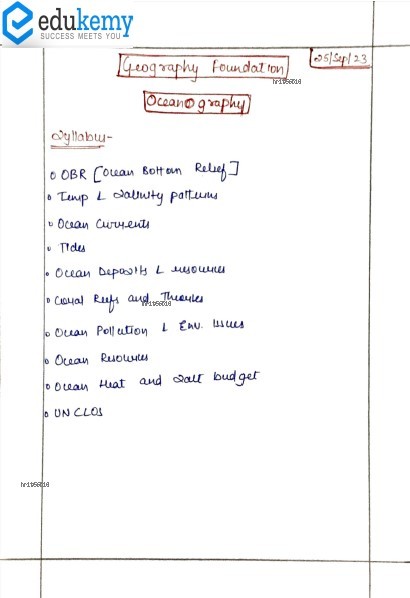 edukemy
SUCCESS MEETS YOU
25/Sep/23
Geography Foundation
Oceanography
Syllabus-
OBR [Ocean Bottom Relief]
Temp & Salinity patterns
Ocean Currents
Tides
Ocean Deposits & resources
Coral Reefs and Theories
Ocean Pollution & Env. Issues
Ocean Resources
Ocean Heat and Salt budget
UNCLOS